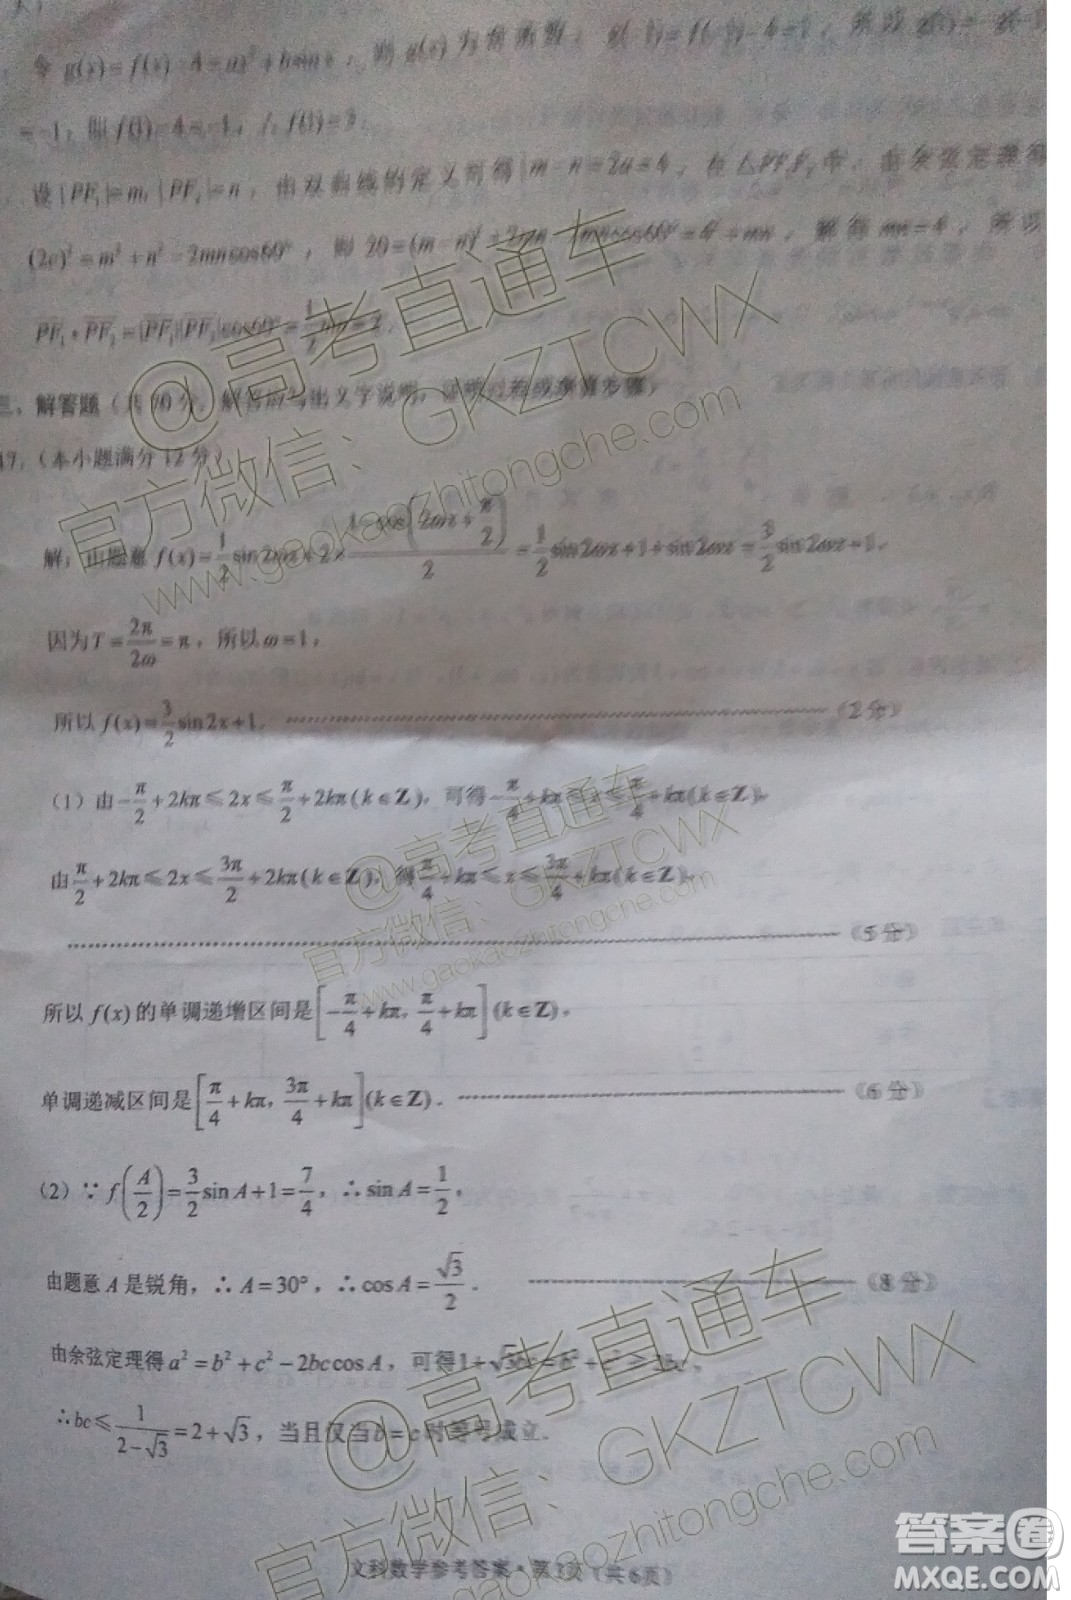 令 g(x)=f(x)-4=ax³+bsin x，则 g(x)为奇函数，
=-1，即 f(1)-4=-1，∴f(1)=3．
设|PF₁|=m，|PF₂|=n，由双曲线的定义可得|m-n|=2a=4，在△PF₁F₂中，由余弦定理得
(2c)²=m²+n²-2mncos60°，则 20=(m-n)²+2mn-2mncos60°=4²+mn，解得 mn=4，所以
PF₁•PF₂=|PF₁||PF₂|cos60°=1/2 mn=2．
三、解答题（共70分．解答应写出文字说明，证明过程或演算步骤）
17．（本小题满分12分）
解：由题意 f(x)=1/2 sin2ωx+2×(1-cos(2ωx+π/2))/2=1/2 sin2ωx+1+sin2ωx=3/2 sin2ωx+1．
因为T=2π/2ω=π，所以ω=1，
所以 f(x)=3/2 sin2x+1．（2分）
（1）由-π/2+2kπ≤2x≤π/2+2kπ(k∈Z)，可得-π/4+kπ≤x≤π/4+kπ(k∈Z)，
由π/2+2kπ≤2x≤3π/2+2kπ(k∈Z)，得π/4+kπ≤x≤3π/4+kπ(k∈Z)，
（5分）
所以 f(x)的单调递增区间是[-π/4+kπ，π/4+kπ](k∈Z)，
单调递减区间是[π/4+kπ，3π/4+kπ](k∈Z)．（6分）
（2）∵f(A/2)=3/2 sinA+1=7/4，∴sinA=1/2，
由题意A是锐角，∴A=30°，∴cosA=√3/2．（8分）
由余弦定理得a²=b²+c²-2bccosA，可得1+√3bc=b²+c²≥2bc，
∴bc≤1/(2-√3)=2+√3，当且仅当b=c时等号成立．
文科数学参考答案·第3页（共6页）
@高考直通车
官方微信、GKZTCWX
www.gaokaozhitongche.com
@高考直通车
官方微信、GKZTCWX
www.gaokaozhitongche.com
@高考直通车
官方微信、GKZTCWX
www.gaokaozhitongche.com
答案圈
MXQE.COM